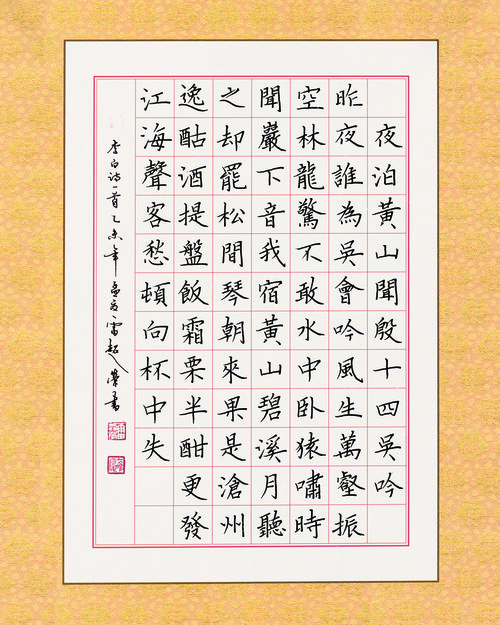 夜泊黃山聞殷十四吳吟
昨夜誰為吳會吟風生萬壑振
空林龍驚不敢水中臥猿嘯時
聞巖下音我宿黃山碧溪月聽
之却罷松間琴朝來果是滄州
逸酤酒提盤飯霜栗半酣更發
江海聲客愁頓向杯中失
李白诗一首乙未年孟夏雷超榮書